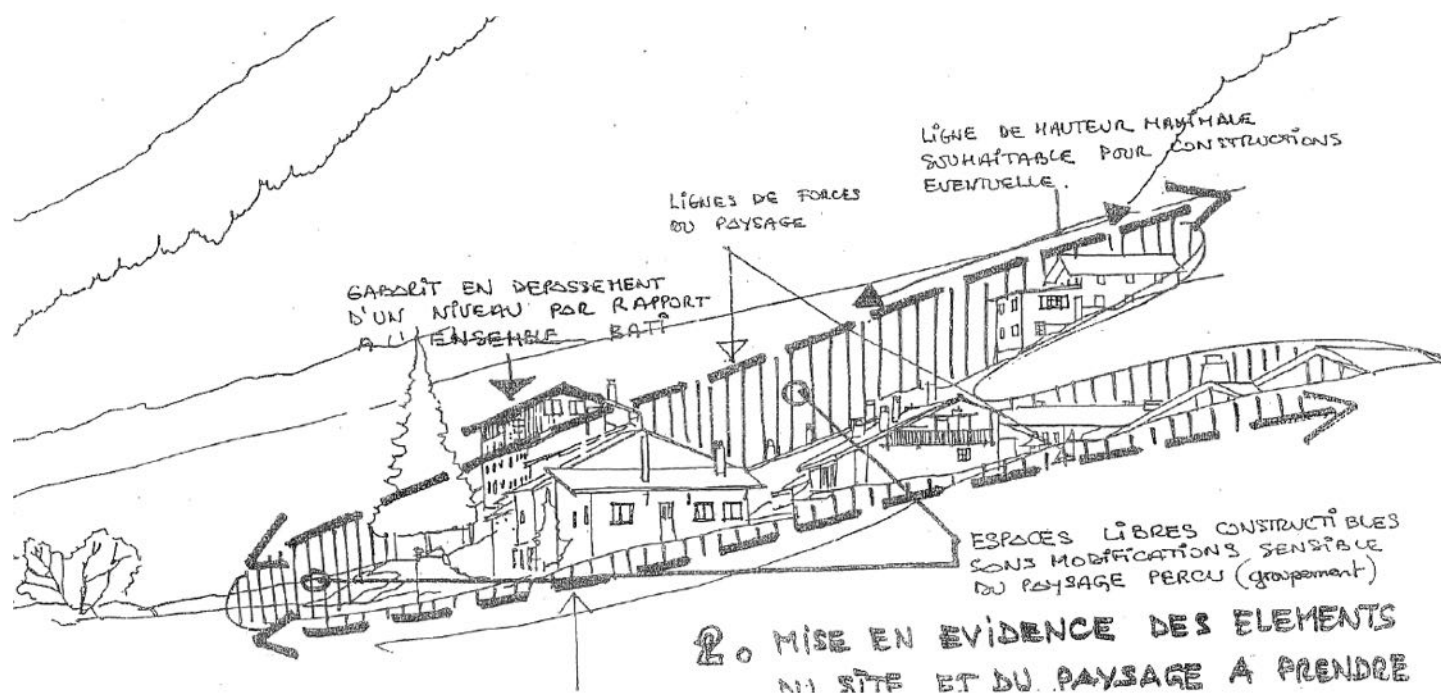 LIGNE DE HAUTEUR MAXIMALE
SOUHAITABLE POUR CONSTRUCTIONS
EVENTUELLE.
LIGNES DE FORCES
DU PAYSAGE
GABARIT EN DEPASSEMENT
D'UN NIVEAU PAR RAPPORT
A L'ENSEMBLE BATI
ESPACES LIBRES CONSTRUCTIBLES
SANS MODIFICATIONS SENSIBLE
DU PAYSAGE PERCU (groupement)
2. MISE EN EVIDENCE DES ELEMENTS
DU SITE ET DU PAYSAGE A PRENDRE